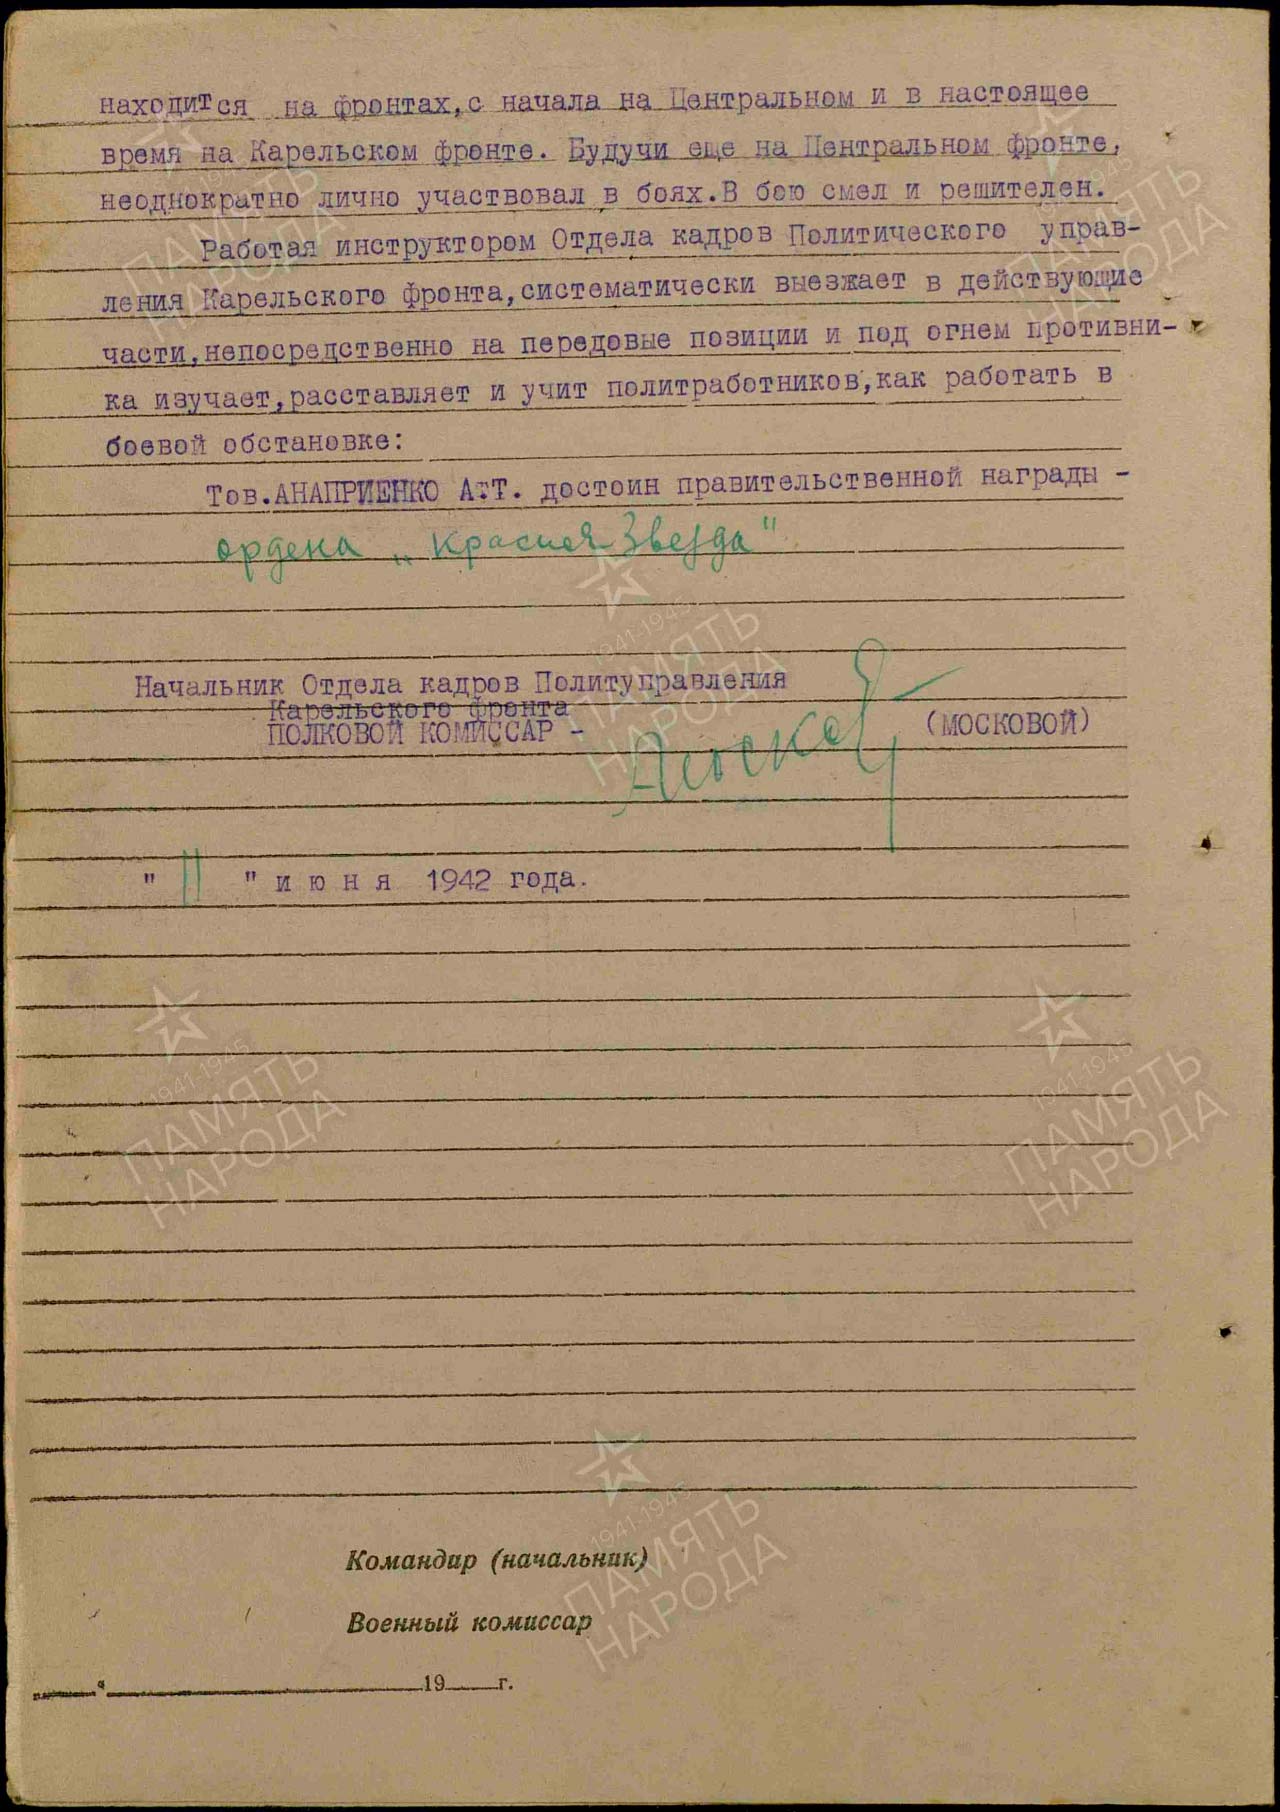 находится на фронтах,с начала на Центральном и в настоящее
время на Карельском фронте. Будучи еще на Центральном фронте,
неоднократно лично участвовал в боях.В бою смел и решителен.
Работая инструктором Отдела кадров Политического управ-
ления Карельского фронта,систематически выезжает в действующие
части,непосредственно на передовые позиции и под огнем противни-
ка изучает,расставляет и учит политработников,как работать в
боевой обстановке:
Тов.АНАПРИЕНКО А.Т. достоин правительственной награды -
ордена „Красная Звезда"
Начальник Отдела кадров Политуправления
Карельского фронта
ПОЛКОВОЙ КОМИССАР - (МОСКОВОЙ)
" 11 " июня 1942 года.
Командир (начальник)
Военный комиссар
" 19 г.
1941-1945
ПАМЯТЬ
НАРОДА